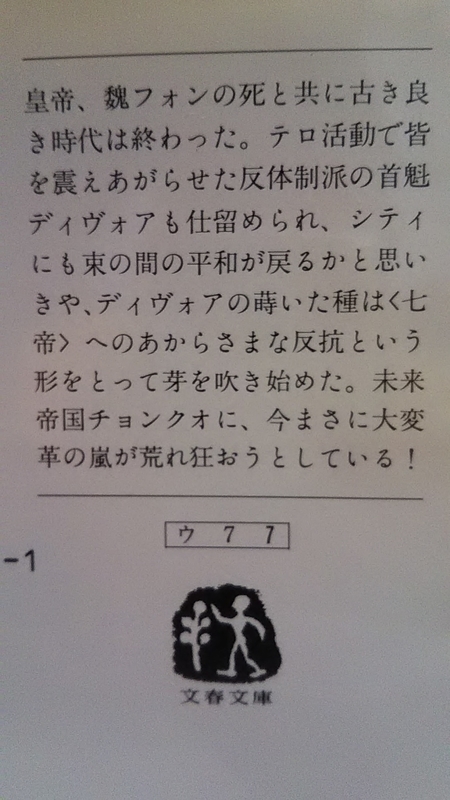 皇帝、魏フォンの死と共に古き良
き時代は終わった。テロ活動で皆
を震えあがらせた反体制派の首魁
ディヴォアも仕留められ、シティ
にも束の間の平和が戻るかと思い
きや、ディヴォアの蒔いた種は〈七
帝〉へのあからさまな反抗という
形をとって芽を吹き始めた。未来
帝国チョンクオに、今まさに大変
革の嵐が荒れ狂おうとしている！
ウ 7 7
-1
文春文庫